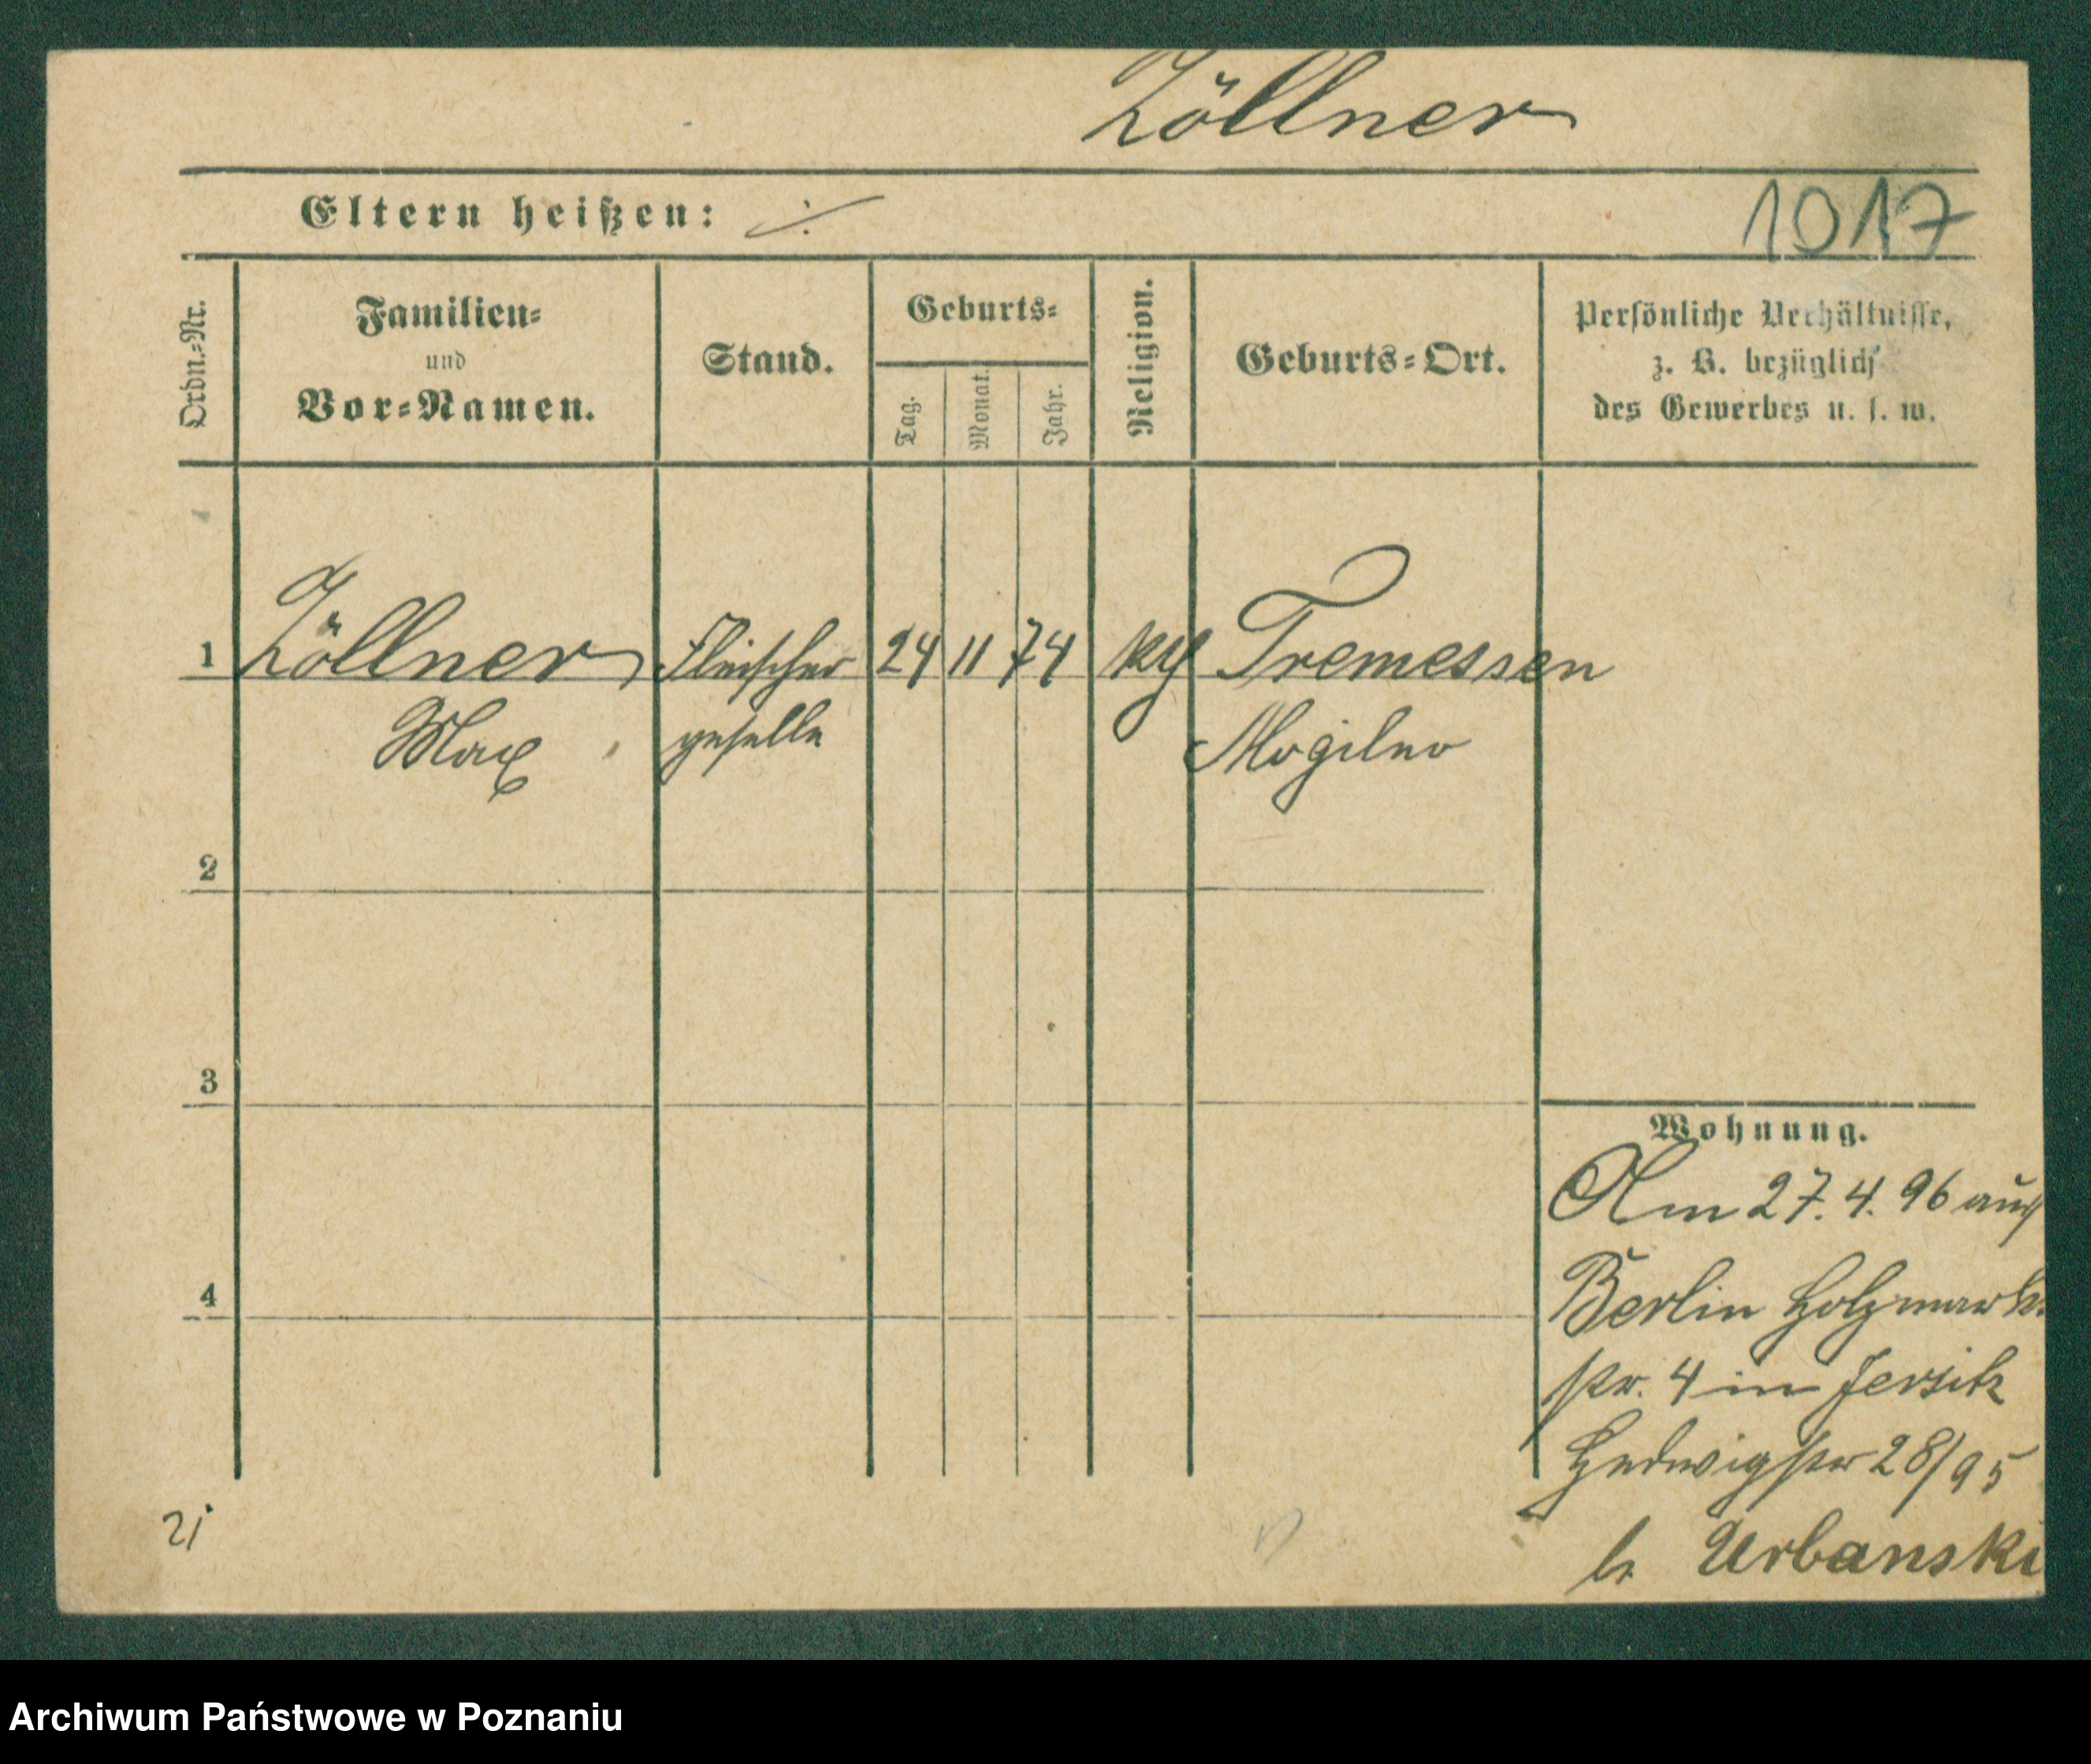 Zöllner
Eltern heißen: ./.
1017
Ordn.-Nr.
Familien-
und
Vor-Namen.
Stand.
Geburts-
Tag.
Monat.
Jahr.
Religion.
Geburts-Ort.
Persönliche Verhältnisse,
z. B. bezüglich
des Gewerbes u. s. w.
1 Zöllner Fleischer 24 11 74 Tremessen
Max geselle Mogilno
2
3
4
Wohnung.
Am 27. 4. 96 aus
Berlin Holzmarkt
str. 4 in Jersitz
Hedwigstr 28/95
b. Urbanski
Archiwum Państwowe w Poznaniu